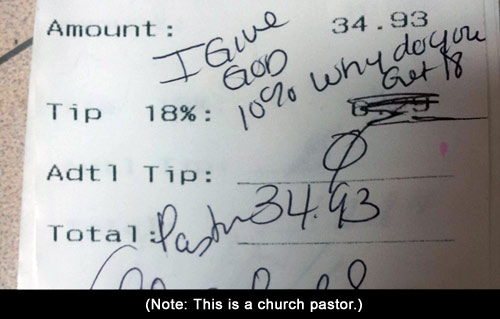 Amount: 34.93
I Give
God
10% Why do you
Get 18
Tip 18%: 6.29
Adtl Tip: 0
Total: Pastor 34.93
(Note: This is a church pastor.)